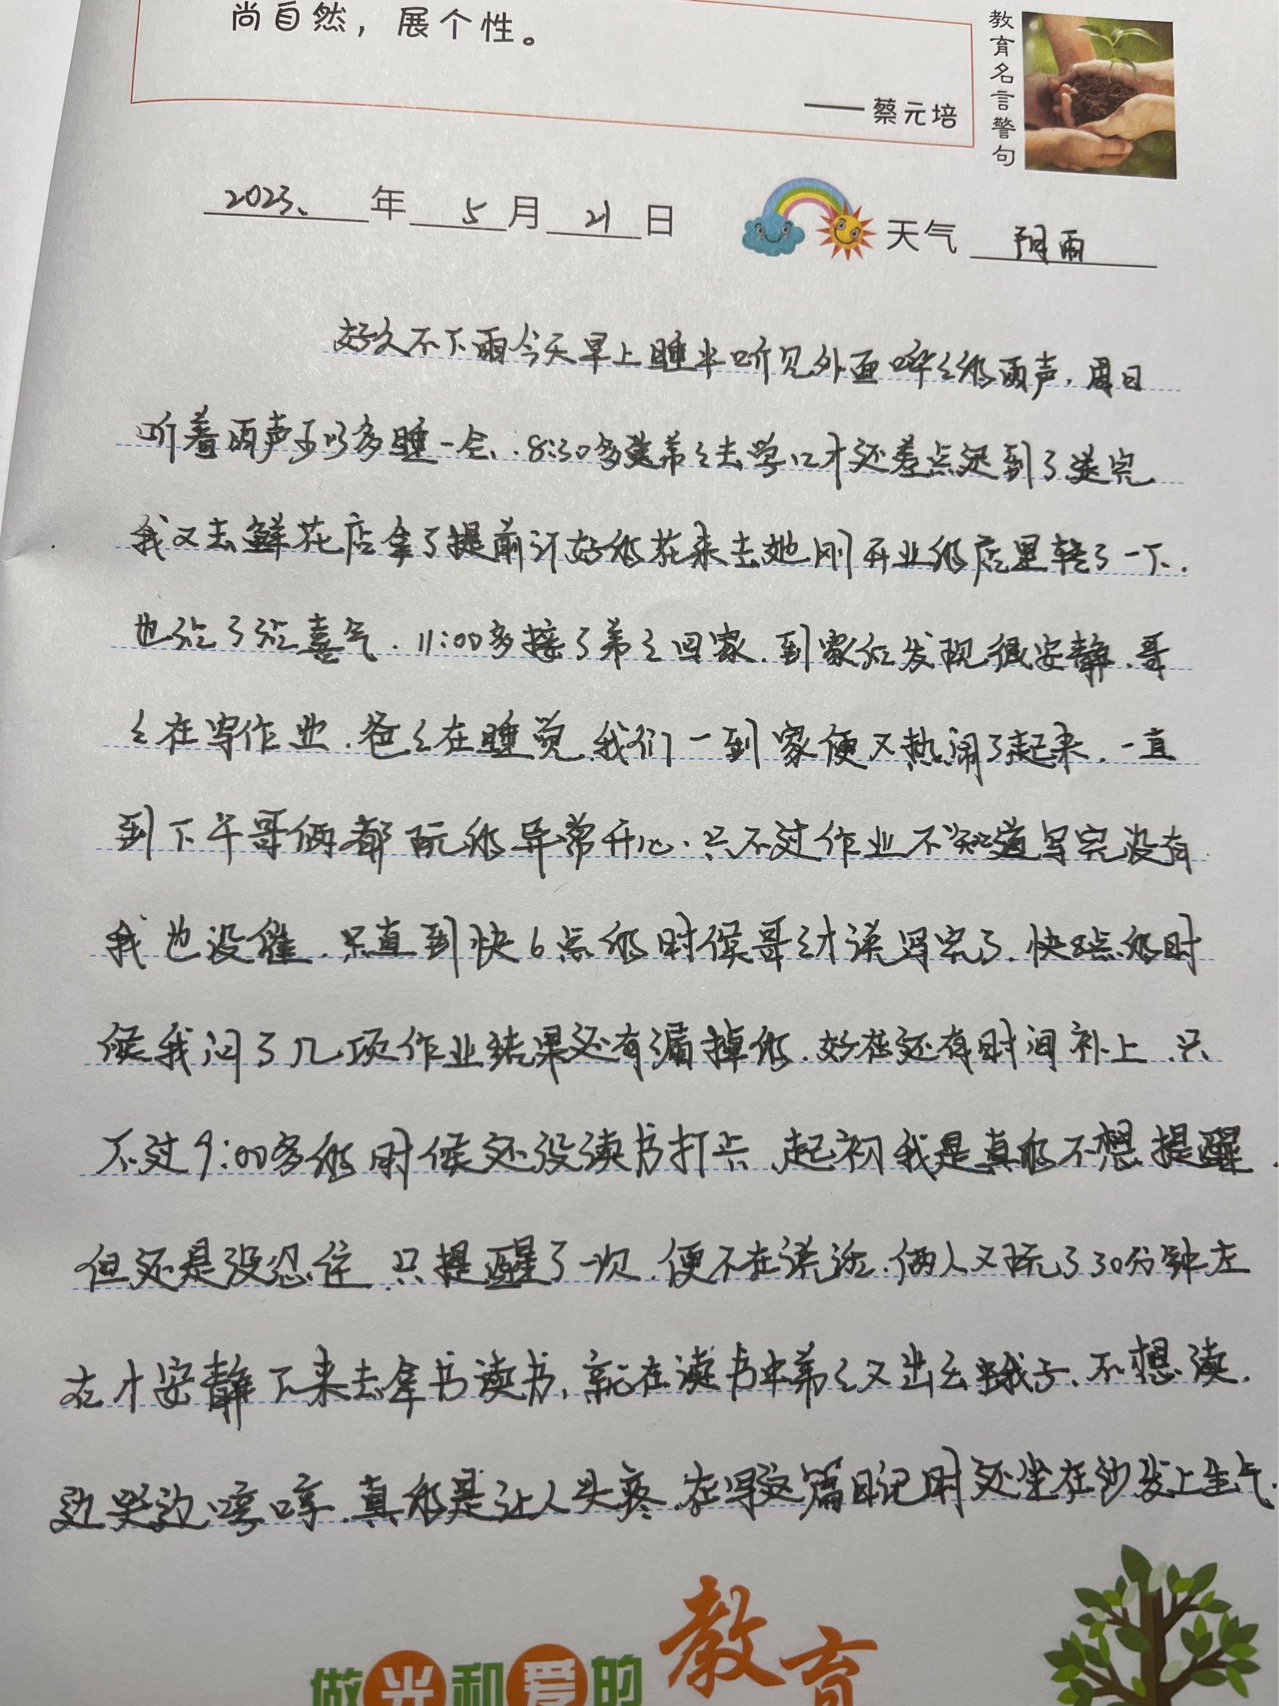 尚自然，展个性。
——蔡元培
教育名言警句
2023、年 5 月 21 日
天气 阴雨
好久不下雨今天早上睡半听见外面哗々的雨声，周日
听着雨声可以多睡一会、8:30多送弟々去学口才还差点迟到了送完
我又去鲜花店拿了提前订好的花来去她刚开业的店里转了一下.
也沾了沾喜气.11:00多接了弟々回家.到家后发现很安静.哥
々在写作业.爸々在睡觉.我们一到家便又热闹了起来.一直
到下午哥俩都玩的异常开心.只不过作业不知道写完没有
我也没催.只直到快6点的时候哥々才说写完了.快8点的时
候我问了几项作业结果还有漏掉的.好在还有时间补上.只
不过9:00多的时候还没读书打卡、起初我是真的不想提醒.
但还是没忍住.只提醒了一次.便不在说话.俩人又玩了30分钟左
右才安静下来去拿书读书,就在读书中弟々又出幺蛾子、不想读.
边哭边哼哼.真的是让人头疼.在写这篇日记时还坐在沙发上生气.
做光和爱的教育